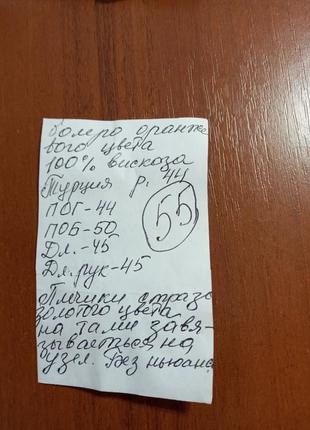 болеро оранже
вого цвета
100% вискоза
Турция р. 44
ПОГ-44
55
ПОБ-50
Дл.-45
Дл. рук-45
Плчики стразы
золотого цвета
на тали завя-
зывается на
узел. Без нюанс